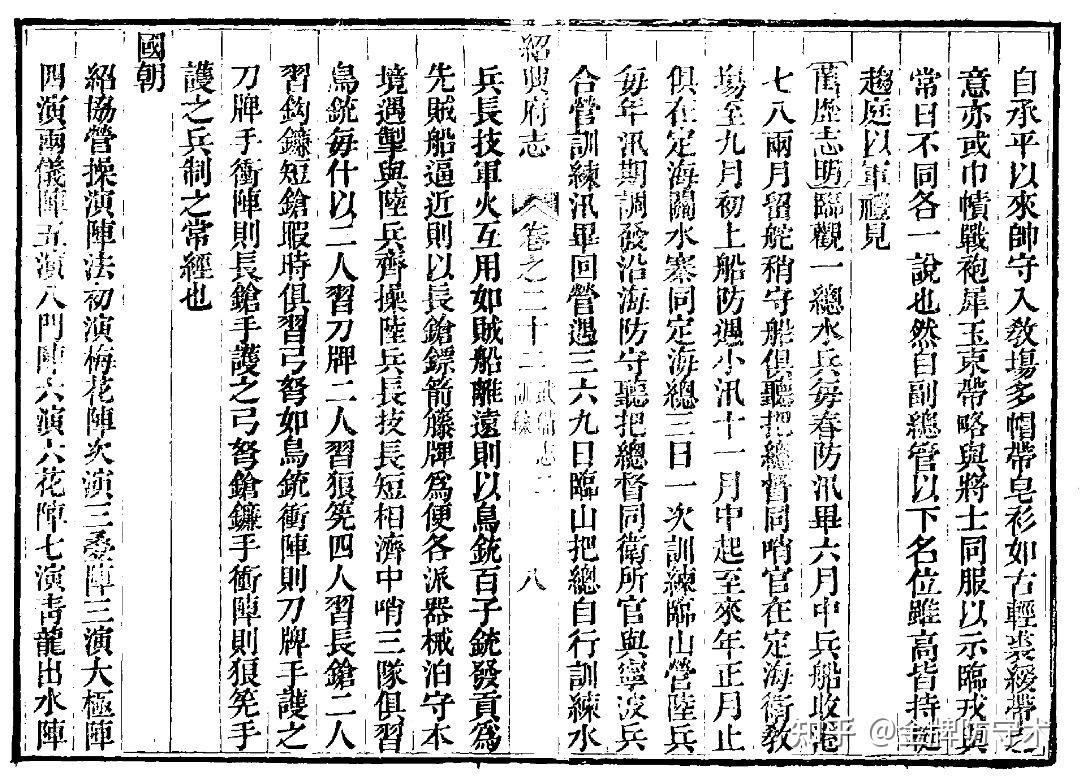 自承平以來帥守入教場多帽帶皂衫如古輕裘緩帶之
意亦或巾幘戰袍犀玉束帶略與將士同服以示臨戎與
常日不同各一說也然自副總管以下名位雖高皆持梃
趨庭以軍禮見
萬歷志明臨觀一總水兵每春防汛畢六月中兵船收港
七八兩月留舵稍守船俱聽把總督同哨官在定海衛教
塲至九月初上船防遇小汛十一月中起至來年正月止
俱在定海關水寨同定海總三日一次訓練臨山營陸兵
每年汛期調發沿海防守聽把總督同衛所官與寧波兵
合營訓練汛畢回營遇三六九日臨山把總自行訓練水
紹興府志 卷之二十二 武備志二 訓練 八
兵長技軍火互用如賊船離遠則以鳥銃百子銃發貢為
先賊船逼近則以長鎗鏢箭籐牌為便各派器械泊守本
境遇掣與陸兵齊操陸兵長技長短相濟中哨三隊俱習
鳥銃每什以二人習刀牌二人習狼筅四人習長鎗二人
習鈎鐮短鎗暇時俱習弓弩如鳥銃衝陣則刀牌手護之
刀牌手衝陣則長鎗手護之弓弩鎗鐮手衝陣則狼筅手
護之兵制之常經也
國朝
紹協營操演陣法初演梅花陣次演三疊陣三演大極陣
四演兩儀陣五演八門陣六演六花陣七演青龍出水陣
知乎 @金牌防守术